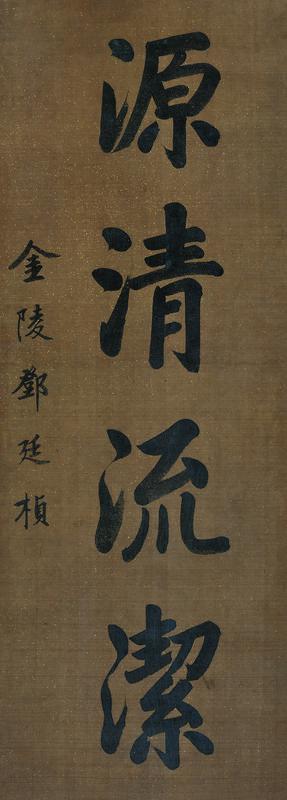 源清流潔
金陵鄧廷楨